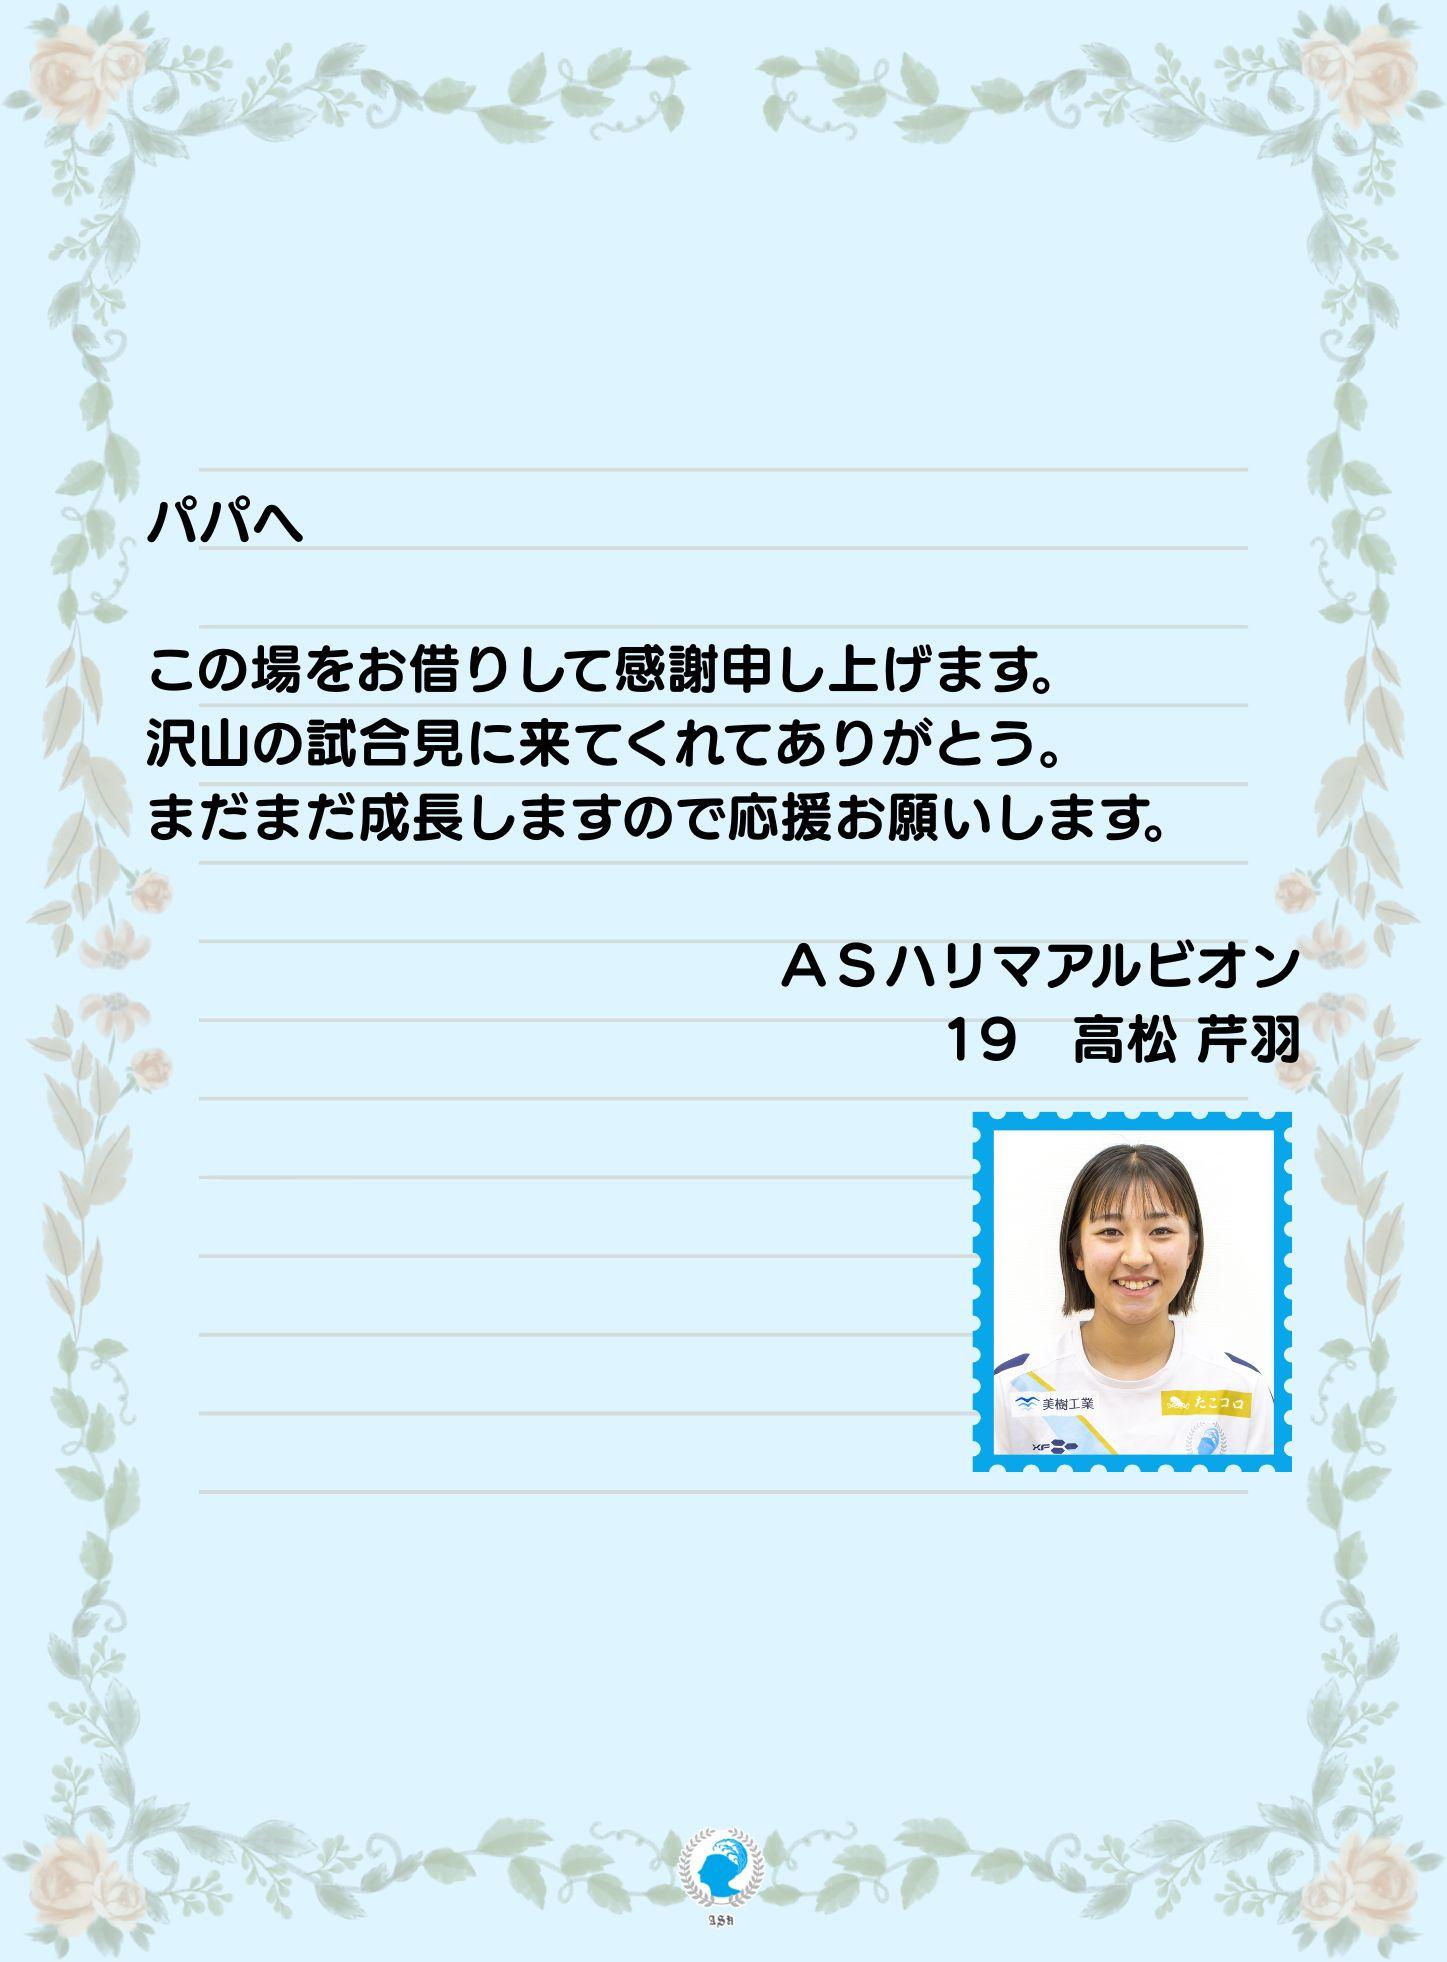 パパへ
この場をお借りして感謝申し上げます。
沢山の試合見に来てくれてありがとう。
まだまだ成長しますので応援お願いします。
ＡＳハリマアルビオン
19　高松 芹羽
美樹工業
たこコロ
XF
ASH